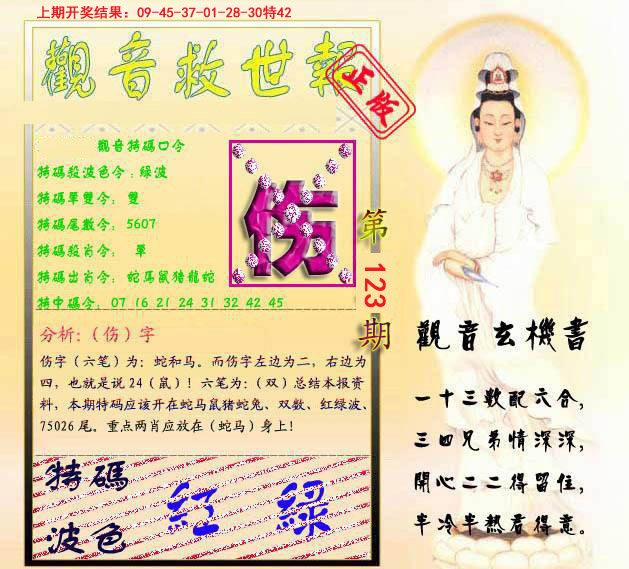 上期开奖结果：09-45-37-01-28-30特42
觀音救世報
正版
觀音特碼口令
特碼殺波色令：綠波
特碼單雙令：雙
特碼尾數令：5607
特碼殺肖令：單
特碼出肖令：蛇馬鼠猪龍蛇
特中碼令：07 16 21 24 31 32 42 45
伤
第123期
分析:（伤）字
伤字（六笔）为：蛇和马。而伤字左边为二，右边为
四，也就是说24（鼠）！六笔为：（双）总结本报资
料，本期特码应该开在蛇马鼠猪蛇兔、双数、红绿波、
75026尾。重点两肖应放在（蛇马）身上！
特碼
波色
紅 綠
觀音玄機書
一十三數配六合，
三四兄弟情深深，
開心二二得留住，
半冷半熱看得意。